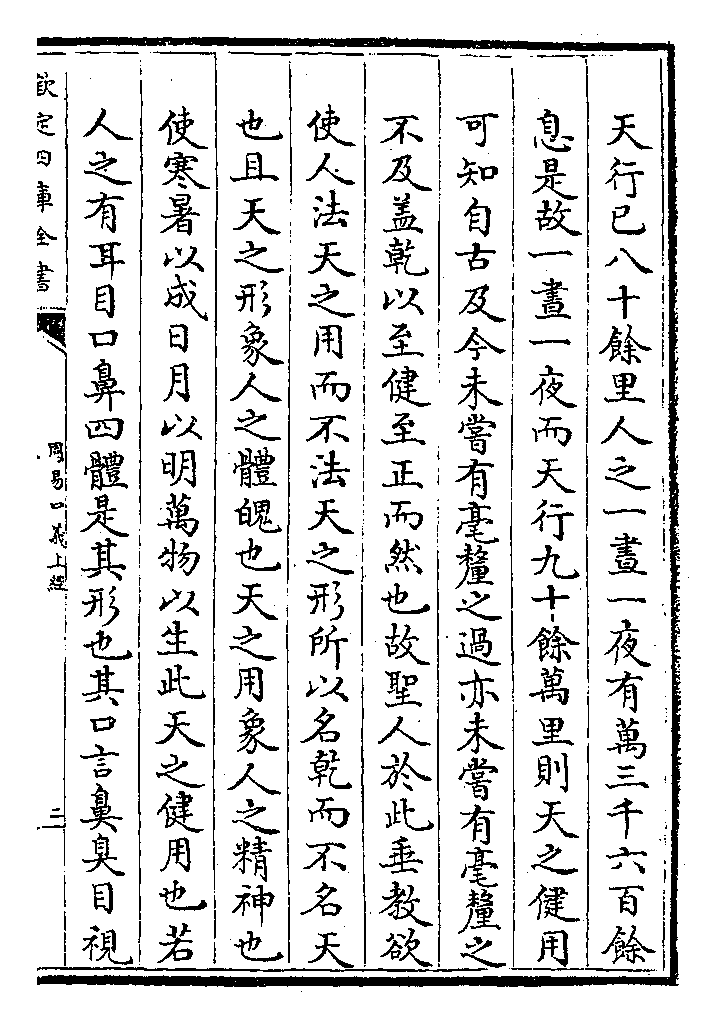 天行已八十餘里人之一晝一夜有萬三千六百餘
息是故一晝一夜而天行九十餘萬里則天之健用
可知自古及今未嘗有毫釐之過亦未嘗有毫釐之
不及盖乾以至健至正而然也故聖人於此垂教欲
使人法天之用而不法天之形所以名乾而不名天
也且天之形象人之體魄也天之用象人之精神也
使寒暑以成日月以明萬物以生此天之健用也若
人之有耳目口鼻四體是其形也其口言鼻臭目視
欽定四庫全書
周易口義上經
二